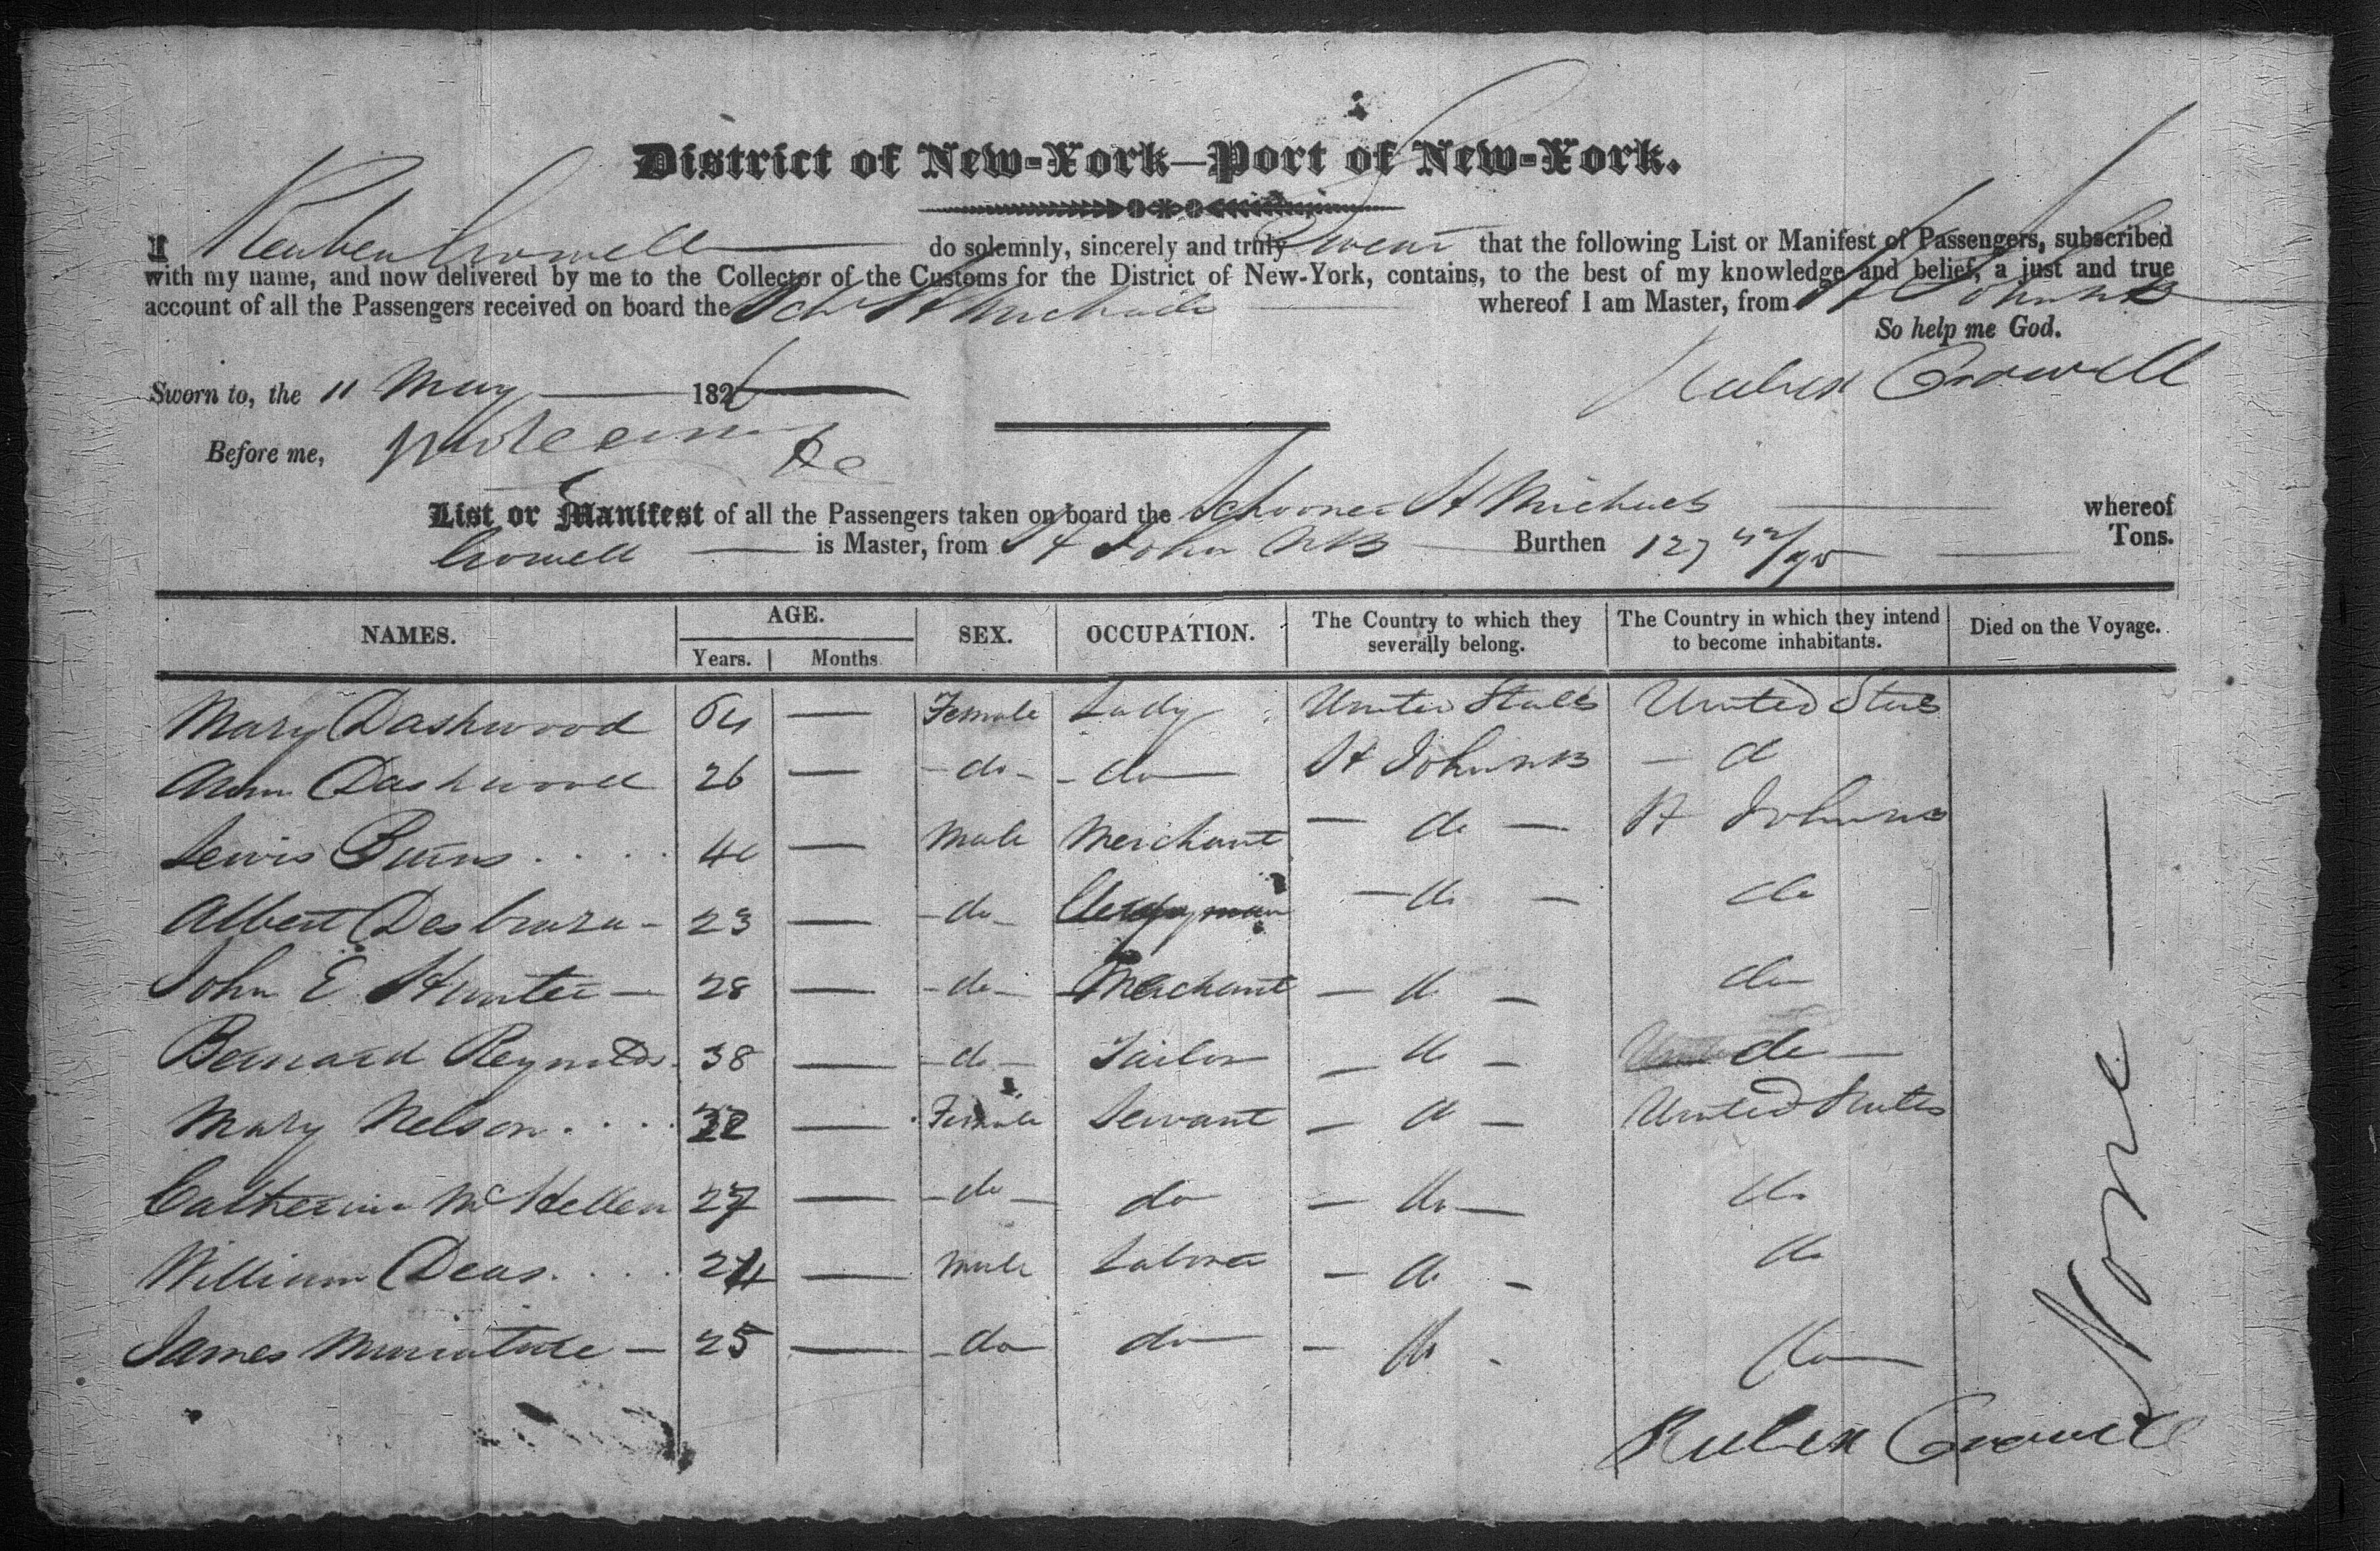 District of New-York—Port of New-York.
I Reuben Crowell do solemnly, sincerely and truly Swear that the following List or Manifest of Passengers, subscribed
with my name, and now delivered by me to the Collector of the Customs for the District of New-York, contains, to the best of my knowledge and belief, a just and true
account of all the Passengers received on board the Schr St Michaels whereof I am Master, from St John NB
So help me God.
Sworn to, the 11 May 1826 Reuben Crowell
Before me,
List or Manifest of all the Passengers taken on board the Schooner St Michaels whereof
Crowell is Master, from St John NB Burthen 127 42/95 Tons.
NAMES. AGE. Years. Months SEX. OCCUPATION. The Country to which they severally belong. The Country in which they intend to become inhabitants. Died on the Voyage.
Mary Dashwood 64 — Female Lady United States United States
Ann Dashwood 26 — do do St John NB — d
Lewis Burns 40 — Male Merchant — do — St John NB
Albert 23 — do Clergyman — do — do
John E Hunter — 28 — do Merchant — do — do
Bernard Reynolds 38 — do Tailor — do — do
Mary Nelson 32 — Female Servant — do — United States
Catherine McKellen 27 — do do — do — do
William Deas 24 — Male Laborer — do — do
James — 25 — do do — do do
None
Reuben Crowell